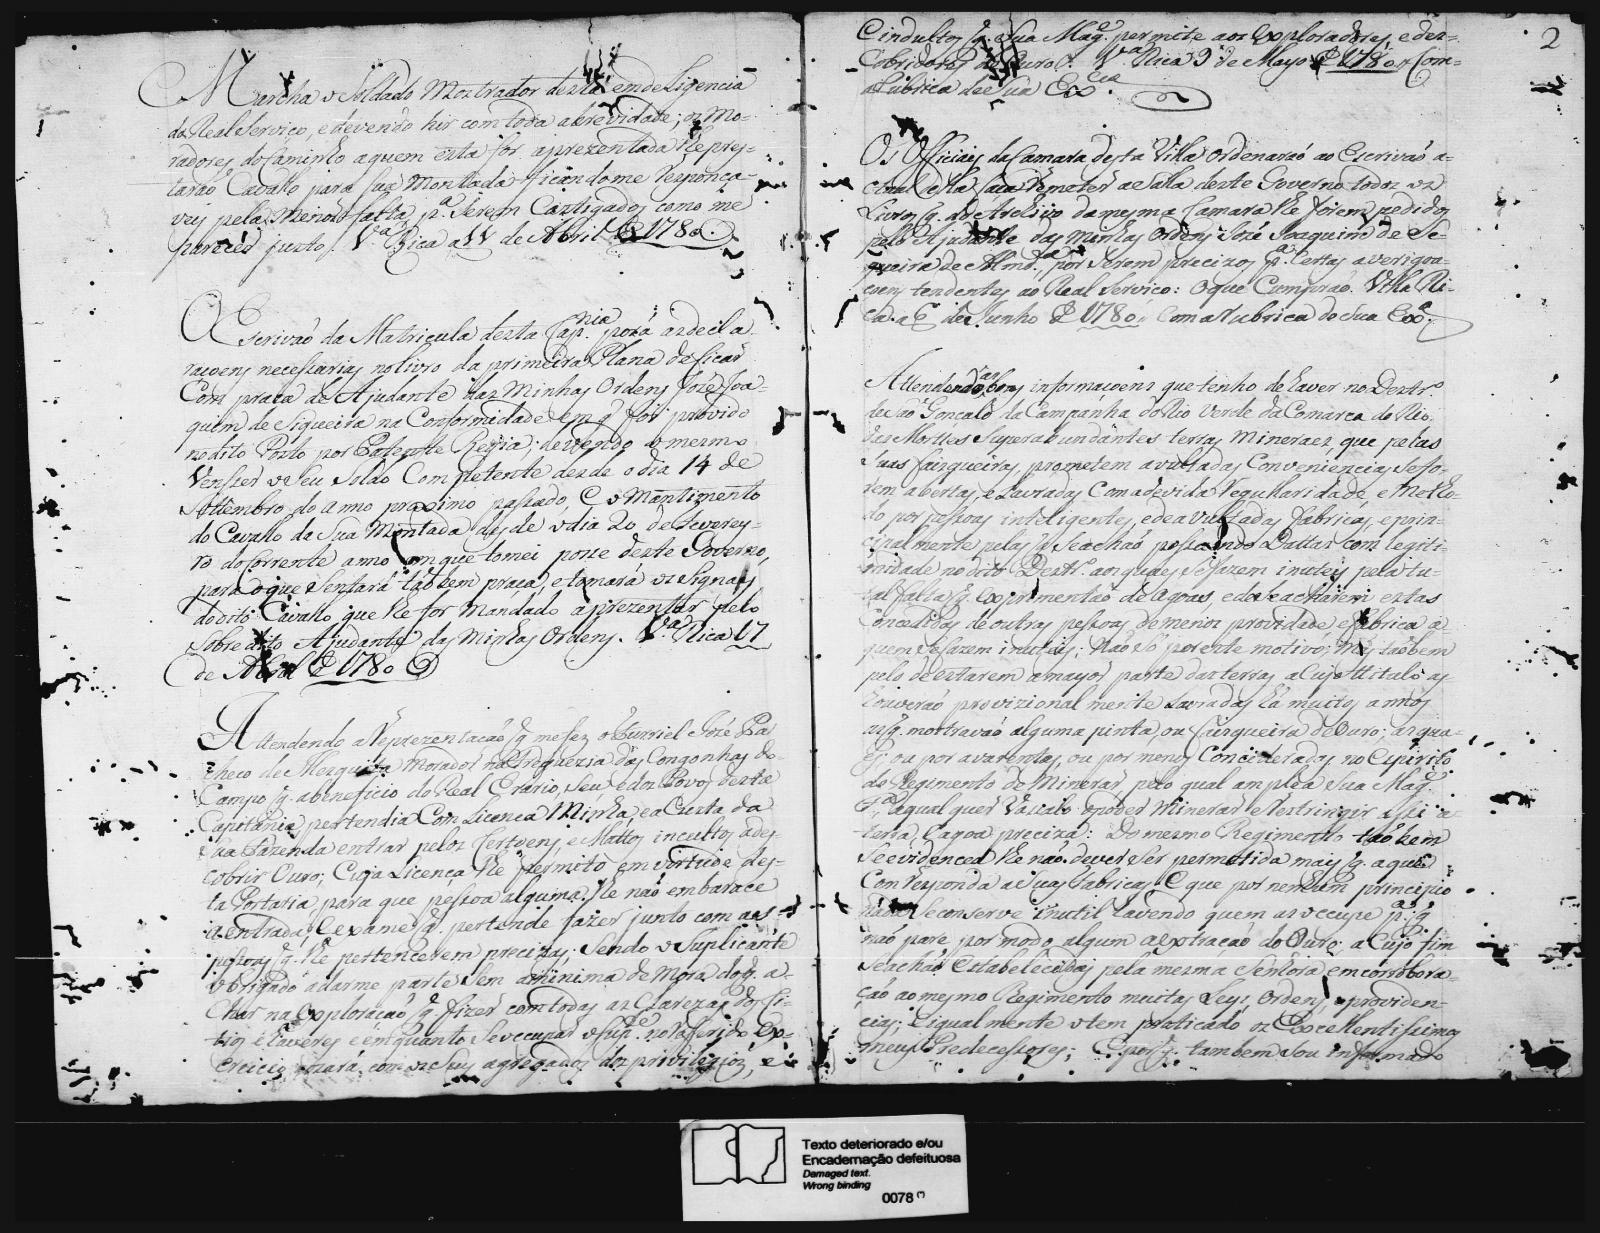 Marcha o Soldado Mostrador desta em deligencia
do Real Serviço, e devendo hir com toda a brevidade; os Mo-
radores do Caminho a quem esta for aprezentada lhe pres-
tarão Cavallo para sua Montada ficandome responça-
veis pela menor falta, p.ª serem Castigados como me
parecer justo. V.ª Rica a 11 de Abril de 1780.
O Escrivão da Matricula desta Cap.nia porá as decla-
raçoens necessarias no livro da primeira Plana de ficar
Com praça de Ajudante das Minhas Ordens Jozé Joa-
quim de Siqueira na Conformidade em q foi provido
no dito Posto por Patente Regia; devendo o mesmo
Vencer o Seu Soldo Competente desde o dia 14 de
Settembro do anno proximo passado, e o Mantimento
do Cavallo da Sua Montada desde o dia 20 de Feverey-
ro do Corrente anno em que tomei posse deste Governo,
para o que Sentará tãobem praça, e tomará os Signaes
do dito Cavallo que lhe for mandado aprezentar pelo
Sobredito Ajudante das Minhas Ordens. V.ª Rica 17
de Abril de 1780
Attendendo a Reprezentação q me fez o Furriel Jozé Pa
checo de Mesquita Morador na Freguezia das Congonhas do
Campo q. a beneficio do Real Erario, seu e dos Povos desta
Capitania, pertendia Com Licença Minha, e a Custa da
sua Fazenda entrar pelos Certoens, e Mattos incultos a des-
cobrir Ouro; Cuja Licença lhe permito em virtude des-
ta Portaria, para que pessoa alguma lhe não embarace
a entrada, e exame q. pertende fazer junto com as
pessoas q. lhe pertencerem precizas; Sendo o Suplicante
obrigado a darme parte sem a minima demora do q. a-
char na exploração q. fizer com todas as Clarezas dos Si-
tios e haveres e emquanto Se occupar o Sup.e no referido Ex-
ercicio gozará com os Seus agregados dos privilegios, e
2
e indultos q. Sua Mag.e permite aos exploradores, e des-
Cobridores de Ouro. V.ª Rica 3 de Mayo de 1780. Com-
a Rubrica de Sua Ex.cia
Os Officiaes da Camara desta Villa ordenaráõ ao Escrivão a-
ctual della faça remeter a Salla deste Governo todos os
Livros q. do Archivo da mesma Camara lhe forem pedidos
pelo Ajudante das minhas Ordens Jozé Joaquim de Se-
queira de Almd.ª por Serem precizos p.ª Certas averigoa-
çoens tendentes ao Real Serviço: O que Cumprirão. Villa Ri-
ca a 6 de Junho de 1780. Com a Rubrica de Sua Ex.ª
Attendendo as boas informaçoens que tenho de haver no Destr.º
de São Gonçalo da Campanha do Rio Verde da Comarca do Rio
das Mortes Superabundantes terras mineraes, que pelas
Suas faisqueiras, prometem avultadas Conveniencias, se fo-
rem abertas, e Lavradas Com a devida regularidade, e Metho-
do por pessoas inteligentes, e de avultadas fabricas, e prin-
cipalmente pelas q Se achão possuindo Dattas com legiti-
midade no dito Destr.º aos quaes Se fazem inuteis pela to-
tal falta q. exprimentão de Agoas, e de Se acharem estas
Concedidas de outras pessoas de menor providade e fabrica a-
quem Se fazem inuteis; Não Só por este motivo; Mas tãobem
pelo de estarem a mayor parte das terras a Cujo titulo as
houverão provizionalmente Lavradas ha muitos annos
as q. mostravão alguma pinta, ou faisqueira de Ouro; as qua-
es ou por avarentas, ou por menos Concideradas no Espirito
do Regimento de Minerar, pelo qual amplea Sua Mag.e
F. a qual quer Vassalo o poder Minerar e Restringir
terra, e agoa preciza: Do mesmo Regimento tãobem
Se evidencea lhe não dever Ser permetida mais q. aque
Conresponda a Suas fabricas, e que por nenhum principio
nada Se conserve inutil havendo quem as occupe p.ª q
não pare por modo algum a extração do Ouro: a Cujo fim
Se achão Estabelecidas pela mesma Senhora em corrobora-
ção ao mesmo Regimento muitas Leys, Ordens, e providen-
cias; e igualmente o tem praticado os Excellentissimos
meus Predecessores; e por q. tambem Sou informado
Texto deteriorado e/ou
Encadernação defeituosa
Damaged text.
Wrong binding
0078 (*)